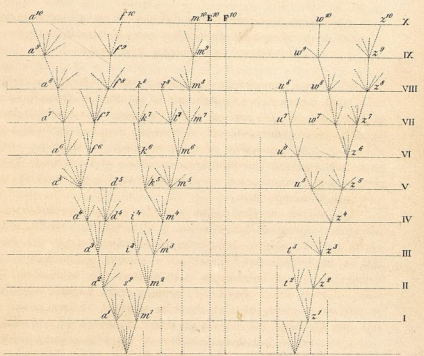 a¹⁰ f¹⁰ m¹⁰ E¹⁰ F¹⁰ w¹⁰ z¹⁰ X
a⁹ f⁹ m⁹ w⁹ z⁹ IX
a⁸ f⁸ k⁸ l⁸ m⁸ u⁸ w⁸ z⁸ VIII
a⁷ f⁷ k⁷ l⁷ m⁷ u⁷ w⁷ z⁷ VII
a⁶ f⁶ k⁶ m⁶ u⁶ z⁶ VI
a⁵ d⁵ k⁵ m⁵ u⁵ z⁵ V
a⁴ d⁴ i⁴ m⁴ z⁴ IV
a³ i³ m³ t³ z³ III
a² s² m² t² z² II
a¹ m¹ z¹ I